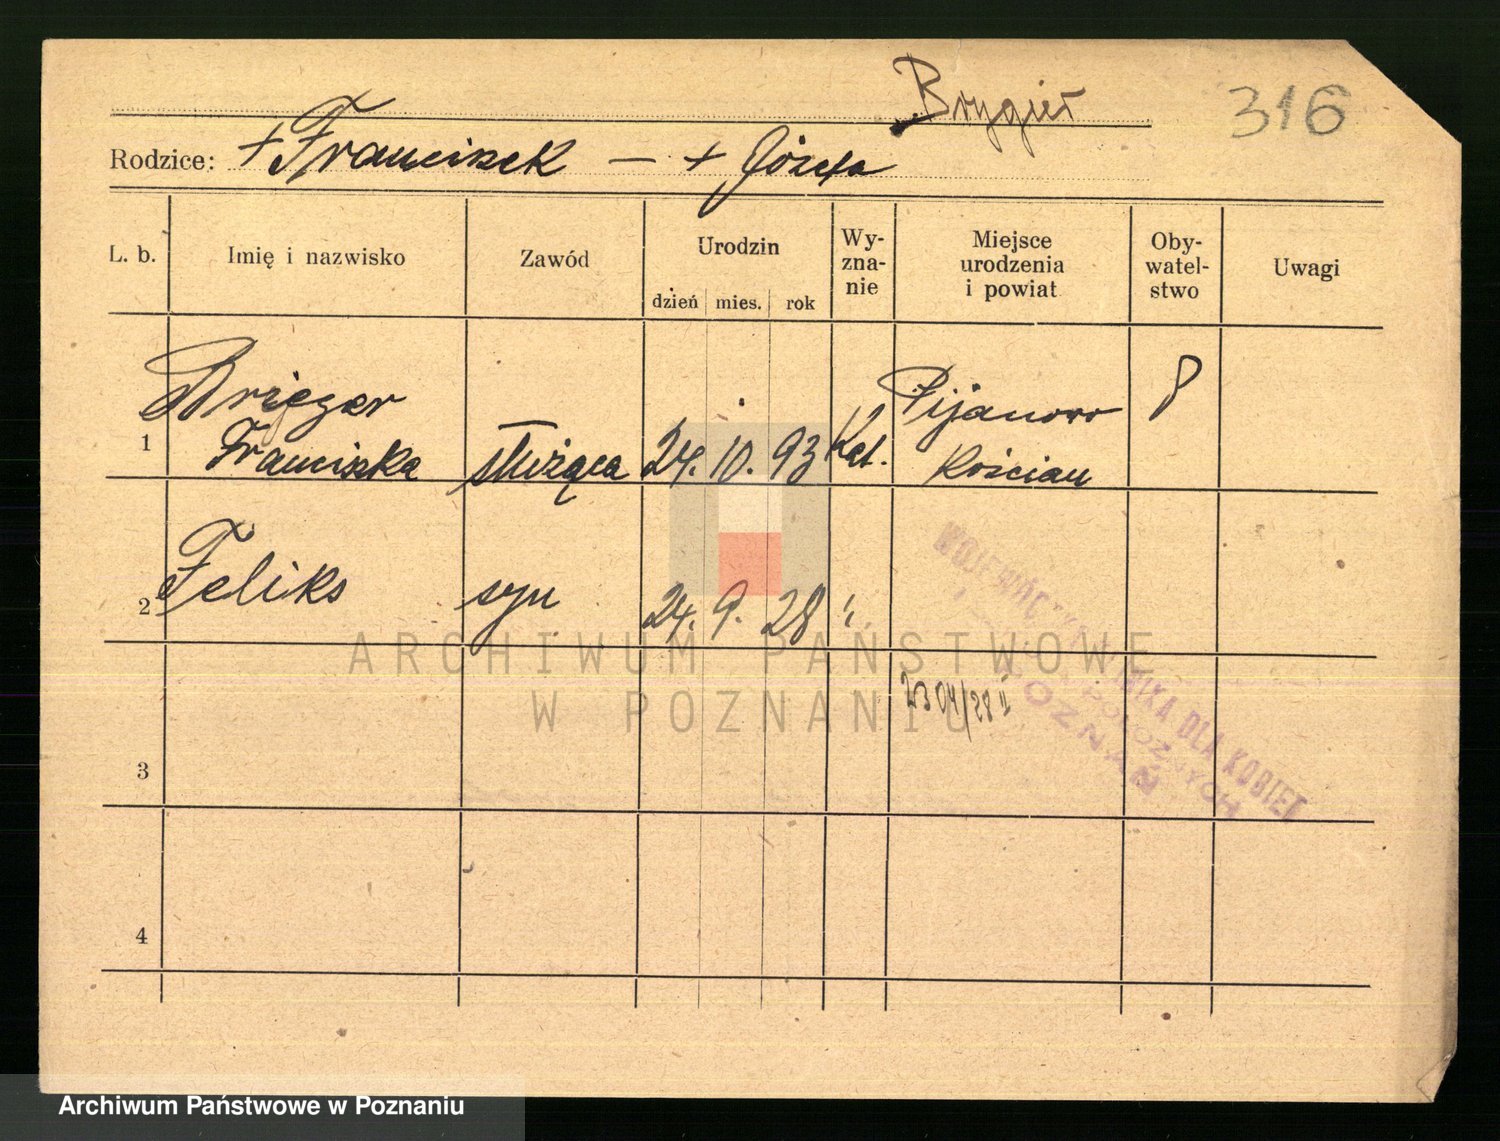 Brygier
316
Rodzice: + Franciszek — + Józefa
L. b. Imię i nazwisko Zawód Urodzin dzień mies. rok Wy-zna-nie Miejsce urodzenia i powiat Oby-watel-stwo Uwagi
Brieger Pijanowo P
1 Franciszka służąca 24. 10. 93 Kat. Kościan
2 Feliks syn 24. 9. 28 "
2304/28 II
WOJEWÓDZKA KLINIKA DLA KOBIET
POŁOŻNYCH
POZNAŃ
3
4
ARCHIWUM PAŃSTWOWE
W POZNANIU
Archiwum Państwowe w Poznaniu